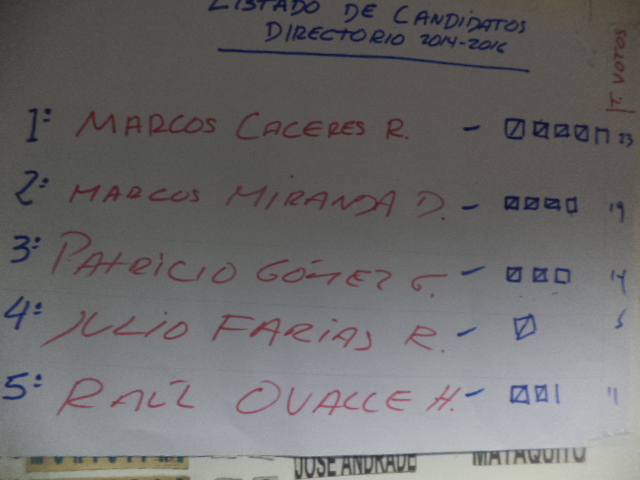 LISTADO DE CANDIDATOS
DIRECTORIO 2014-2016
T. VOTOS
1: MARCOS CACERES R. - 23
2: MARCOS MIRANDA D. - 19
3: PATRICIO GÓMEZ G. - 14
4: JULIO FARIAS R. - 5
5: RAÚL OVALLE H. - 11
JOSE ANDRADE MATAQUITO